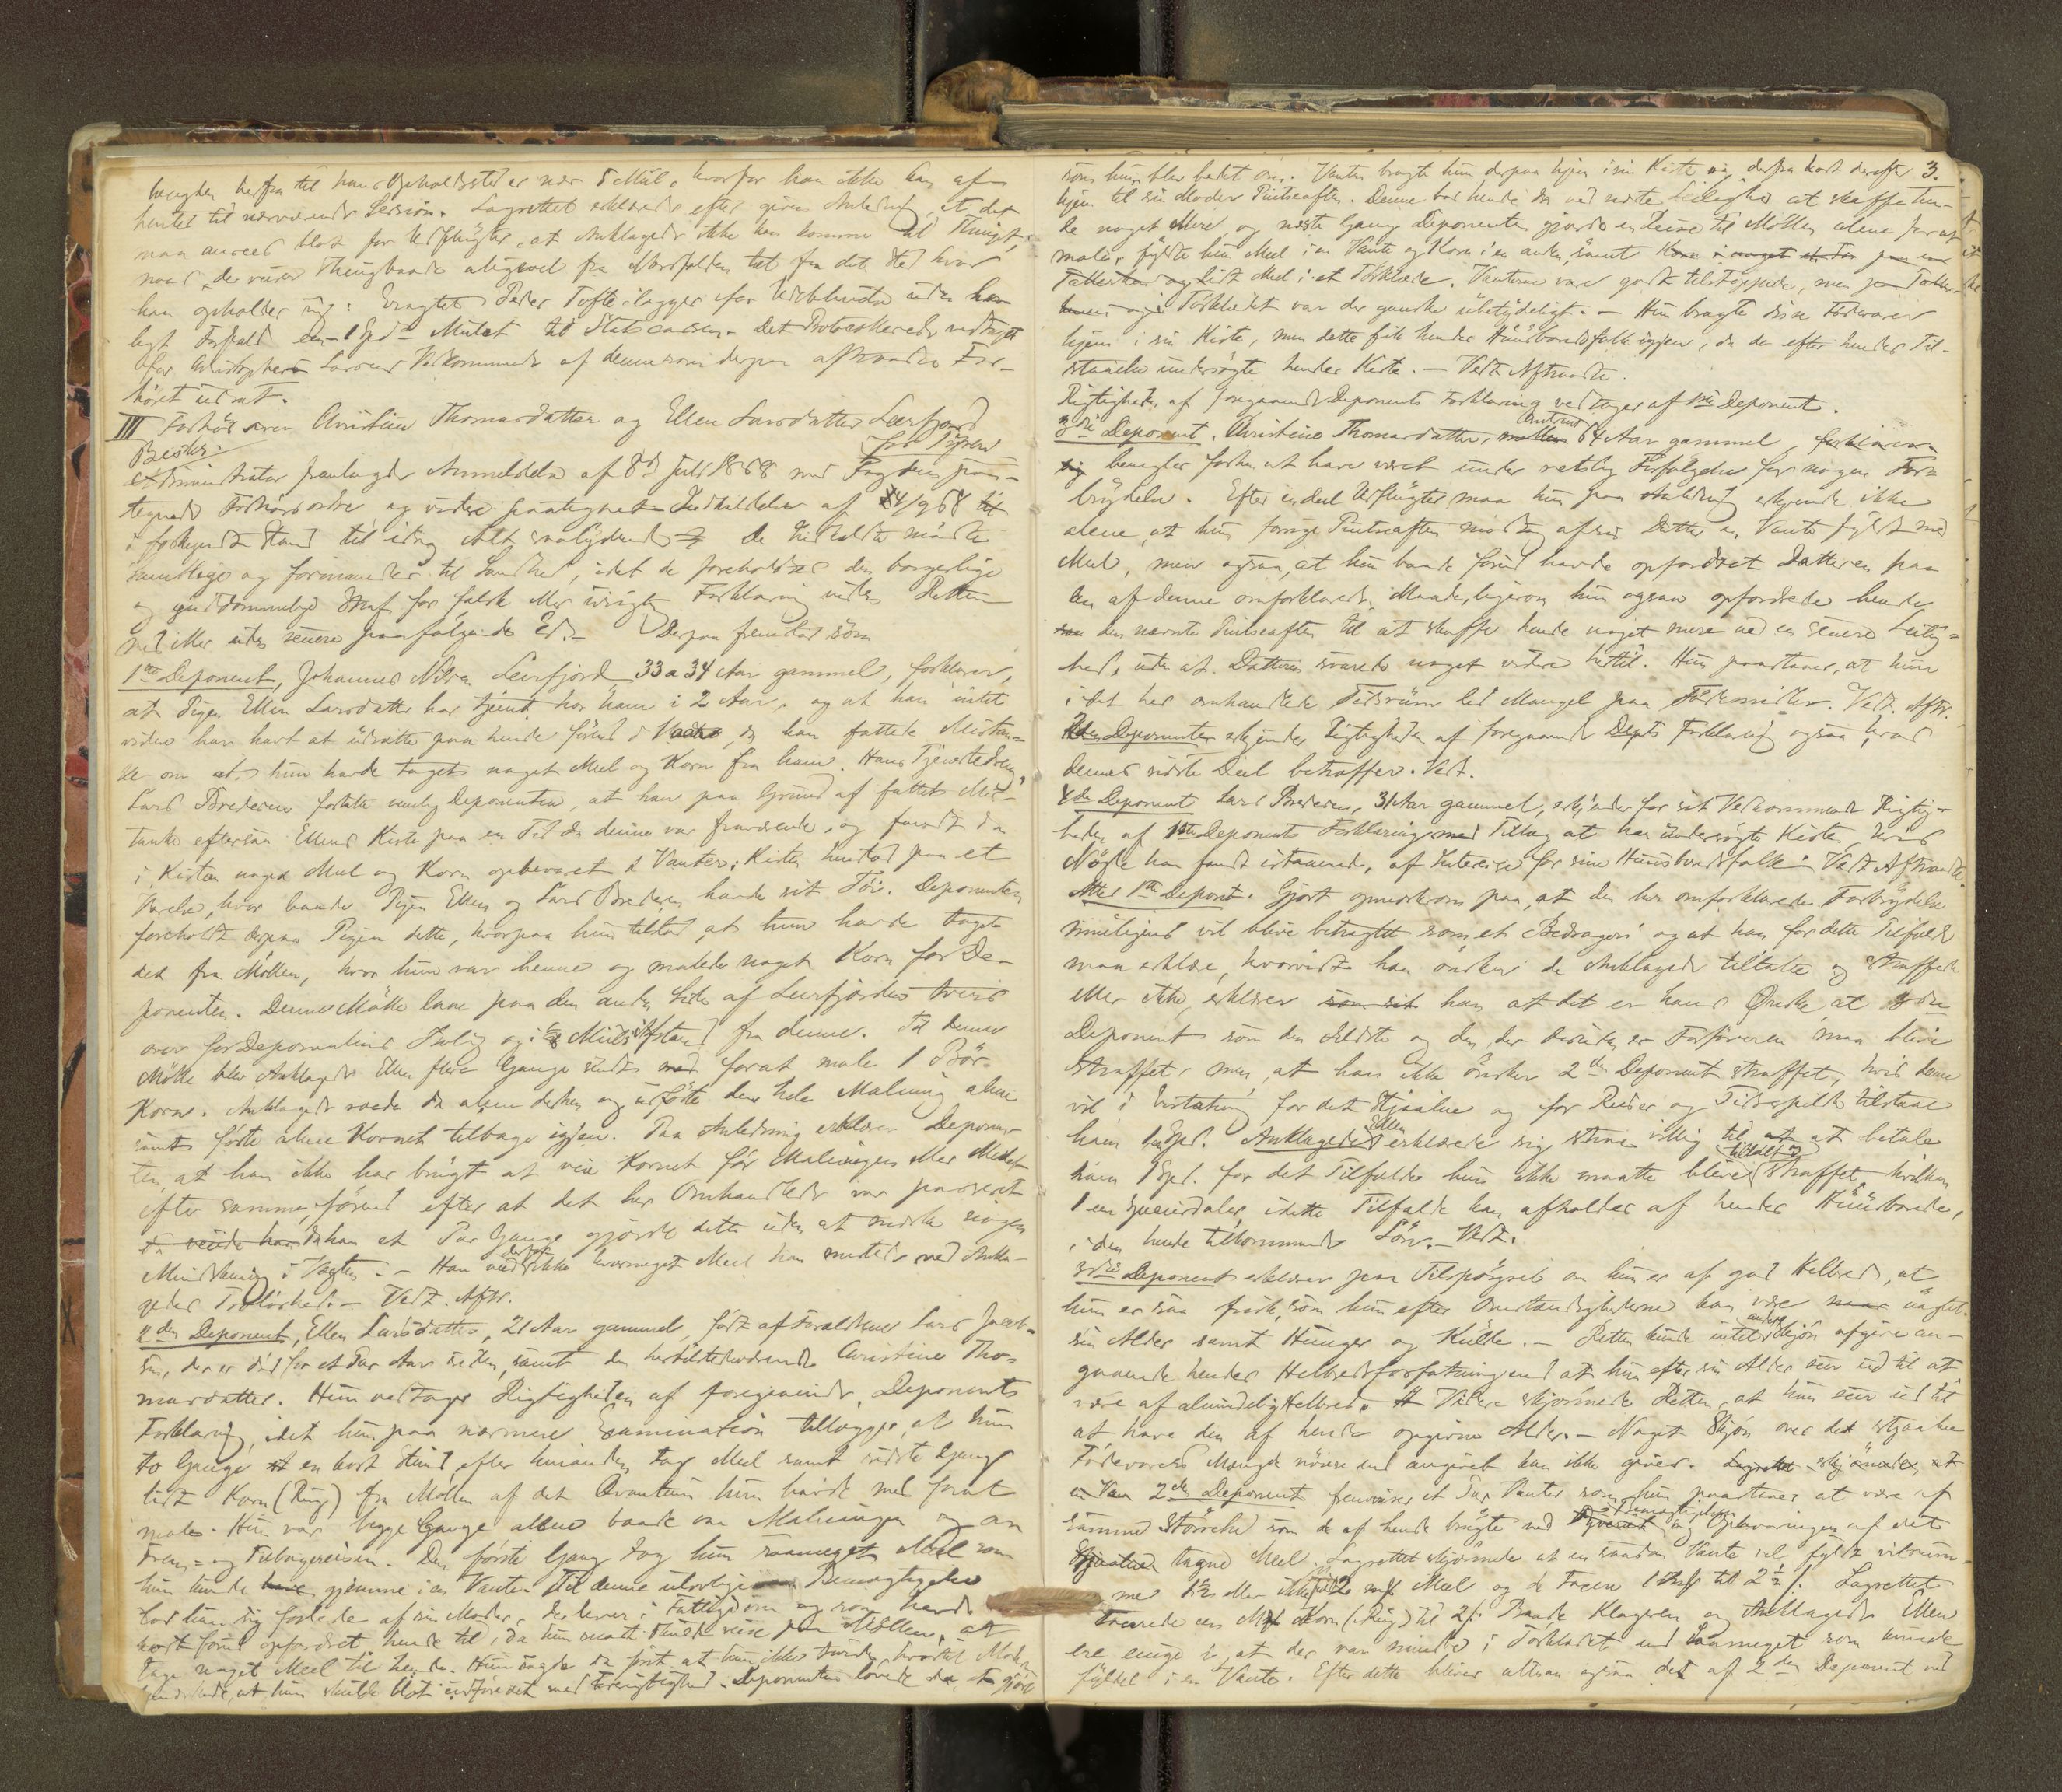 herfra til hans Opholdssted er nær 5 Mil, hvorfor han ikke kan af-
hentes til nærværende Session. Lagrettet erklærede efter given Anledning, at det
maa ansees blot for Udflugter, at Anklagede ikke kan komme til Thinget,
naar der reiser Thingbønder aligevel fra Nordfolden tet fra det Sted hvor
han opholder sig: Eragtet: Peder Tofte ilægges for Udeblivelse uden
lugt Forfald en - 1 Spd - Mulct til Statscassen. Det Protocollerede vedtoges
for Christophers Larsens Vedkommende af denne som derpaa aftraadte. For-
höret udsat.
III Forhör over Christine Thomasdatter og Ellen Larsdatter Leerfjord
for Tyveri
Administrator fremlagde Anmeldelse af 8de Juli 1868 med Fogdens paa-
tegnede Forhörsordre og videre paategnet Indkaldelse af 14/9 68
i forkyndt Stand til idag Alt saalydende De Indkaldte mödte
samtlige og formanedes til Sandhed, idet de foreholdtes den borgerlige
og guddommelige Straf for falsk eller urigtig Forklaring inden Retten
med eller uden senere paafölgende Ed. - Derpaa fremstod som
1ste Deponent, Johannes Nilsen Leerfjord 33 a 34 Aar gammel, forklarer,
at Pigen Ellen Larsdatter har tjent hos ham i 2 Aar, og at han intet
videre har havt at udsætte paa hende förend i Vaares, da han fattede Mistan-
ke om at hun havde taget noget Meel og Korn fra ham. Hans Tjenestedreng,
Lars Pedersen fortalte nemlig Deponenten, at han paa Grund af fattet Mis-
tanke eftersaa Ellens Kiste paa en Tid da denne var fraværende, og fandt da
i Kisten noget Meel og Korn opbevaret i Vanter; Kisten henstod paa et
Værelse, hvor baade Pigen Ellen og Lars Pedersen havde sit Töi. Deponenten
foreholdt derpaa Pigen dette, hvorpaa hun tilstod, at hun havde taget
det fra Möllen, hvor hun var henne og malede noget Korn for De-
ponenten. Denne Mölle laae paa den anden Side af Leerfjorden tvers
over for Deponentens Bolig og i 1/2 Miils Afstand fra denne. Til denne
Mölle blev Anklagede Ellen flere Gange sendt for at male 1 Bör
Korn. Anklagede roede da alene derhen og udförte den hele Maling alene
samt förte alene Kornet tilbage igjen. Paa Anledning erklærer Deponen-
ten, at han ikke har brugt at veie Kornet för Malingen eller Meelet
efter samme, förend efter at det her Omhandlede var passeret
da han et Par Gange gjorde dette uden at mærke nogen
Mindskning i Vægten. - Han veed ikke hvormeget Meel han mistede ved Ankla-
gedes Troløshed. - Vedt. Aftr.
2den Deponent, Ellen Larsdatter, 21 Aar gammel, født af Forældrene Lars Jacob-
sen, der er död for et Par Aar siden, samt den hertilstedværende Christine Tho-
masdatter. Hun vedtager Rigtigheden af foregaaende Deponents
Forklaring, idet hun paa nærmere Examination tillægger, at hun
to Gange en kort Stund efter hinanden tog Meel samt sidste Gang
lidt Korn (Rug) fra Möllen af det Qvantum hun havde med forat
male. Hun var begge Gange alene baade om Malingen og om
Frem- og Tilbagereisen. Den förste Gang tog hun saameget Meel som
hun kunde gjemme i en Vante. Til denne ulovlige Bemægtigelse
lod hun sig forlede af sin Moder, der lever i Fattigdom og som havde
kort forud opfordret hende til, da hun snart skulde reise paa Möllen, at
tage noget Meel til hende. Hun sagde da först at hun ikke turde, hvortil Moderen
at hun skulde blot udföre det med Forsigtighed. Deponenten lovede da at gjöre
3.
som hun blev bedt om. Vanten bragte hun derpaa hjem i sin Kiste og derfra kort derefter
hjem til sin Moder Pintseaften. Denne bad hende da ved næste Leilighed at skaffe hen-
de noget Mere, og næste Gang Deponenten gjorde en Reise til Möllen alene for at
male, fyldte hun Meel i en Vante og Korn i en anden, samt
lidt Meel i et Forklæde. Vanterne vare godt tilstoppede, men
i Forklædet var der ganske ubetydeligt. - Hun bragte disse Födevarer
hjem i sin Kiste, men dette fik hendes Huusbondsfolk igjen, da de efter hendes Til-
staaelse undersögte hendes Kiste. - Vedt. Aftraadte.
Rigtigheden af foregaaende Deponents Forklaring vedtages af 1ste Deponent.
3die Deponent. Christine Thomasdatter, omtrent 64 Aar gammel,
benegter forhen at have været under retslig Forfölgelse for nogen For-
brydelse. Efter endeel Udflugter maa hun paa Anledning erkjende ikke
alene, at hun forrige Pintseaften modtog af sin Datter en Vante fyldt med
Meel, men ogsaa, at hun baade forud havde opfordret Datteren paa
den af denne omforklarede Maade, ligesom hun ogsaa opfordrede hende
den nævnte Pintseaften til at skaffe hende noget mere ved en senere Leilig-
hed, uden at Datteren svarede noget videre hertil. Hun paastaaer, at hun
i det her omhandlede Tidsrum led Mangel paa Födemidler. Vedt. Aftr.
2den Deponent erkjender Rigtigheden af foregaaende Depts Forklaring ogsaa hvad
dennes sidste Deel betræffer. Vedt.
4de Deponent Lars Pedersen, 31 Aar gammel, erkjender for sit Vedkommende Rigtig-
heden af 1ste Deponents Forklaring med Tillæg at han undersögte Kisten, hvis
Nögle han fandt istaaende, af Interesse for sine Huusbondsfolk. Vedt. Aftraadte.
Atter 1ste Deponent. Gjort opmærksom paa, at den her omforklarede Forbrydelse
rimeligviis vil blive betragtet som et Bedrageri og at han for dette Tilfælde
maa erklære, hvorvidt han önsker de Anklagede tiltalte og straffede
eller ikke, erklærer han at det er hans Önske, at 3die
Deponent som den Ældste og den, der desuden er Forföreren maa blive
straffet, men, at han ikke önsker 2den Deponent straffet, hvis denne
vil i Erstatning for det Stjaalne og for Reiser og Tidsspilde tilstaae
ham 1 Spd. Anklagede Ellen erklærede sig villig til at betale
ham 1 Spd. for det Tilfælde hun ikke maatte blive tiltalt og straffet, hvilken
1 een Speciedaler, i dette Tilfælde kan afholdes af hendes Huusbonde,
i den hende tilkommende Lön. - Vedt.
3die Deponent erklærer paa Tilspörgsel om hun er af god Helbred, at
hun er saa frisk, som hun efter Omstændighederne kan være uagtet
sin Alder samt Hunger og Kulde. - Retten kunde intet andet Skjön afgive an-
gaaende hendes Helbredsforfatning end at hun efter sin Alder seer ud til at
være af almindelig Helbred. Videre skjönnede Retten, at hun seer ud til
at have den af hende opgivne Alder. - Noget Skjön over det stjaalne
Födevarers Mængde nöiere end angivet kan ikke gives.
2den Deponent fremviser et Par Vanter som hun paastaaer at være af
samme Störrelse som de af hende brugte ved og Opbevaringen af det
tagne Meel. Lagrettet skjönnede at en saadan Vante vel fyldt vil rum-
me 1 1/2 eller ikke fuldt 2 mk Meel og de Taxere 1 mk til 2 1/2 s. Lagrettet
taxerede en Mk Korn (Rug) til 2 s. Baade Klageren og Anklagede Ellen
ere enige i, at der var mindre i Forklædet end saameget som kunde
fyldes i en Vante. Efter dette bliver altsaa ogsaa det af 2den Deponent ved